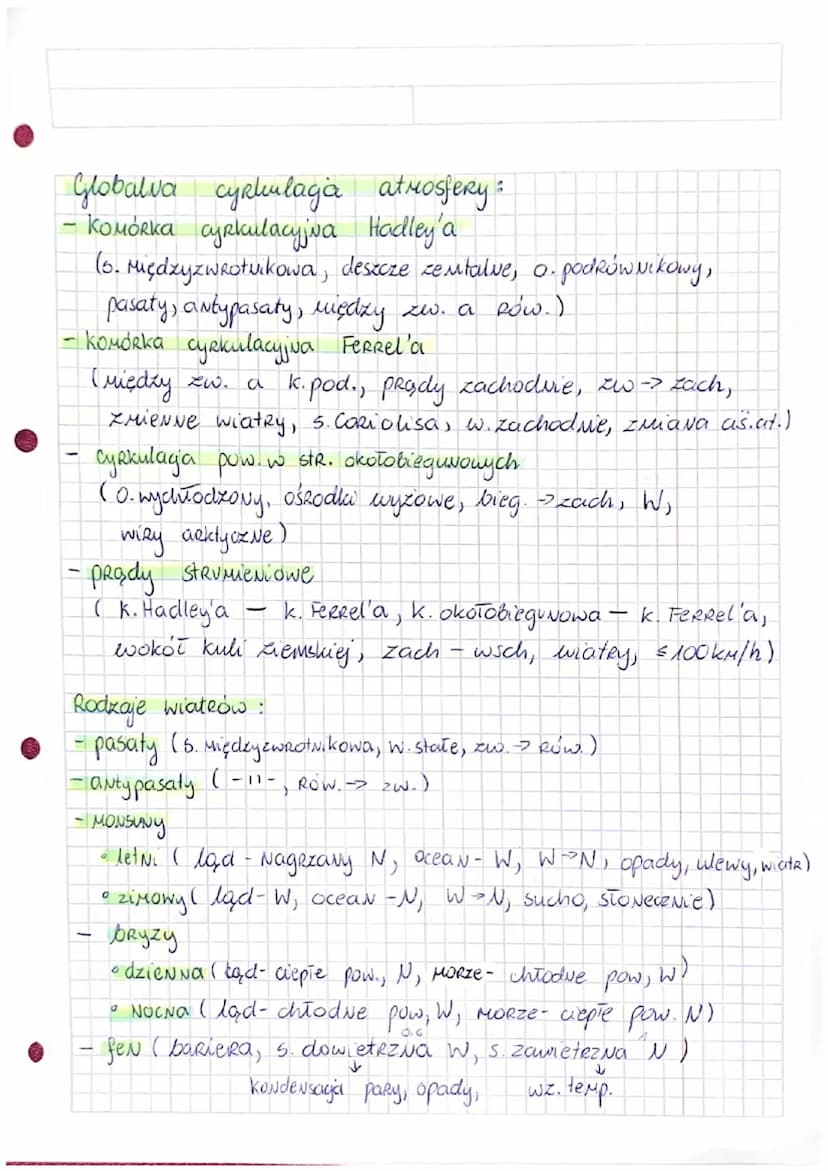 Globalna cyrkulacja atmosfery:
- komórka cyrkulacyjna Hadley'a
(s. międzyzwrotnikowa, deszcze zenitalne, o. podrównikowy,
pasaty, antypasaty, między zw. a rów.)
- komórka cyrkulacyjna Ferrel'a
(między zw. a k. pod., prądy zachodnie, zw -> zach,
zmienne wiatry, s. Coriolisa, w. zachodnie, zmiana ciś. at.)
- cyrkulacja pow. w str. okołobiegunowych
(o. wychłodzony, ośrodki wyżowe, bieg. -> zach, W,
wiry arktyczne)
- prądy strumieniowe
(k. Hadley'a - k. Ferrel'a, k. okołobiegunowa - k. Ferrel'a,
wokół kuli ziemskiej, zach - wsch, wiatry, ≤ 100km/h)
Rodzaje wiatrów:
- pasaty (s. międzyzwrotnikowa, w. stałe, zw. -> rów.)
- antypasaty (-11-, rów. -> zw.)
- monsuny
• letni (ląd - nagrzany N, ocean - W, W->N, opady, ulewy, wiatr)
• zimowy (ląd - W, ocean - N, W->N, sucho, słonecznie)
- bryzy
• dzienna (ląd - ciepłe pow., N, morze - chłodne pow, W)
• nocna (ląd - chłodne pow, W, morze - ciepłe pow. N)
0,6 1
- fen (bariera, s. dowietrzna W, s. zawietrzna N)
↓ ↓
kondensacja pary, opady, wz. temp.